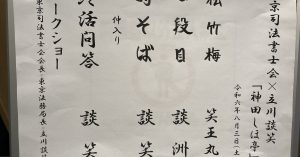 京司法書士会×立川談笑
「神田しほ亭」
令和六年八月三日(土
松竹梅 笑王丸
段目 談洲
時そば 談笑
仲入り
終活問答 談笑
ークショー
東京司法書士会会長・東京法務局長・立川談